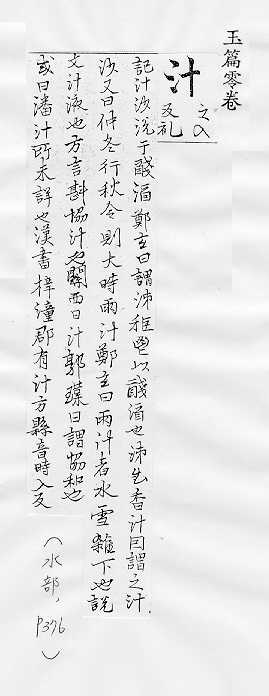 玉篇零卷
汁
之入
反礼
記汁汋涚于醆酒鄭玄曰謂沛秬鬯以醆酒也沛香汁因謂之汁
汋又曰仲冬行秋令則大時雨汁鄭玄曰雨汁者水雪雜下也說
文汁液也方言斟協汁也關西曰汁郭璞曰謂協和也
或曰潘汁所未詳也漢書梓潼郡有汁方縣音時入反
（水部，P376）